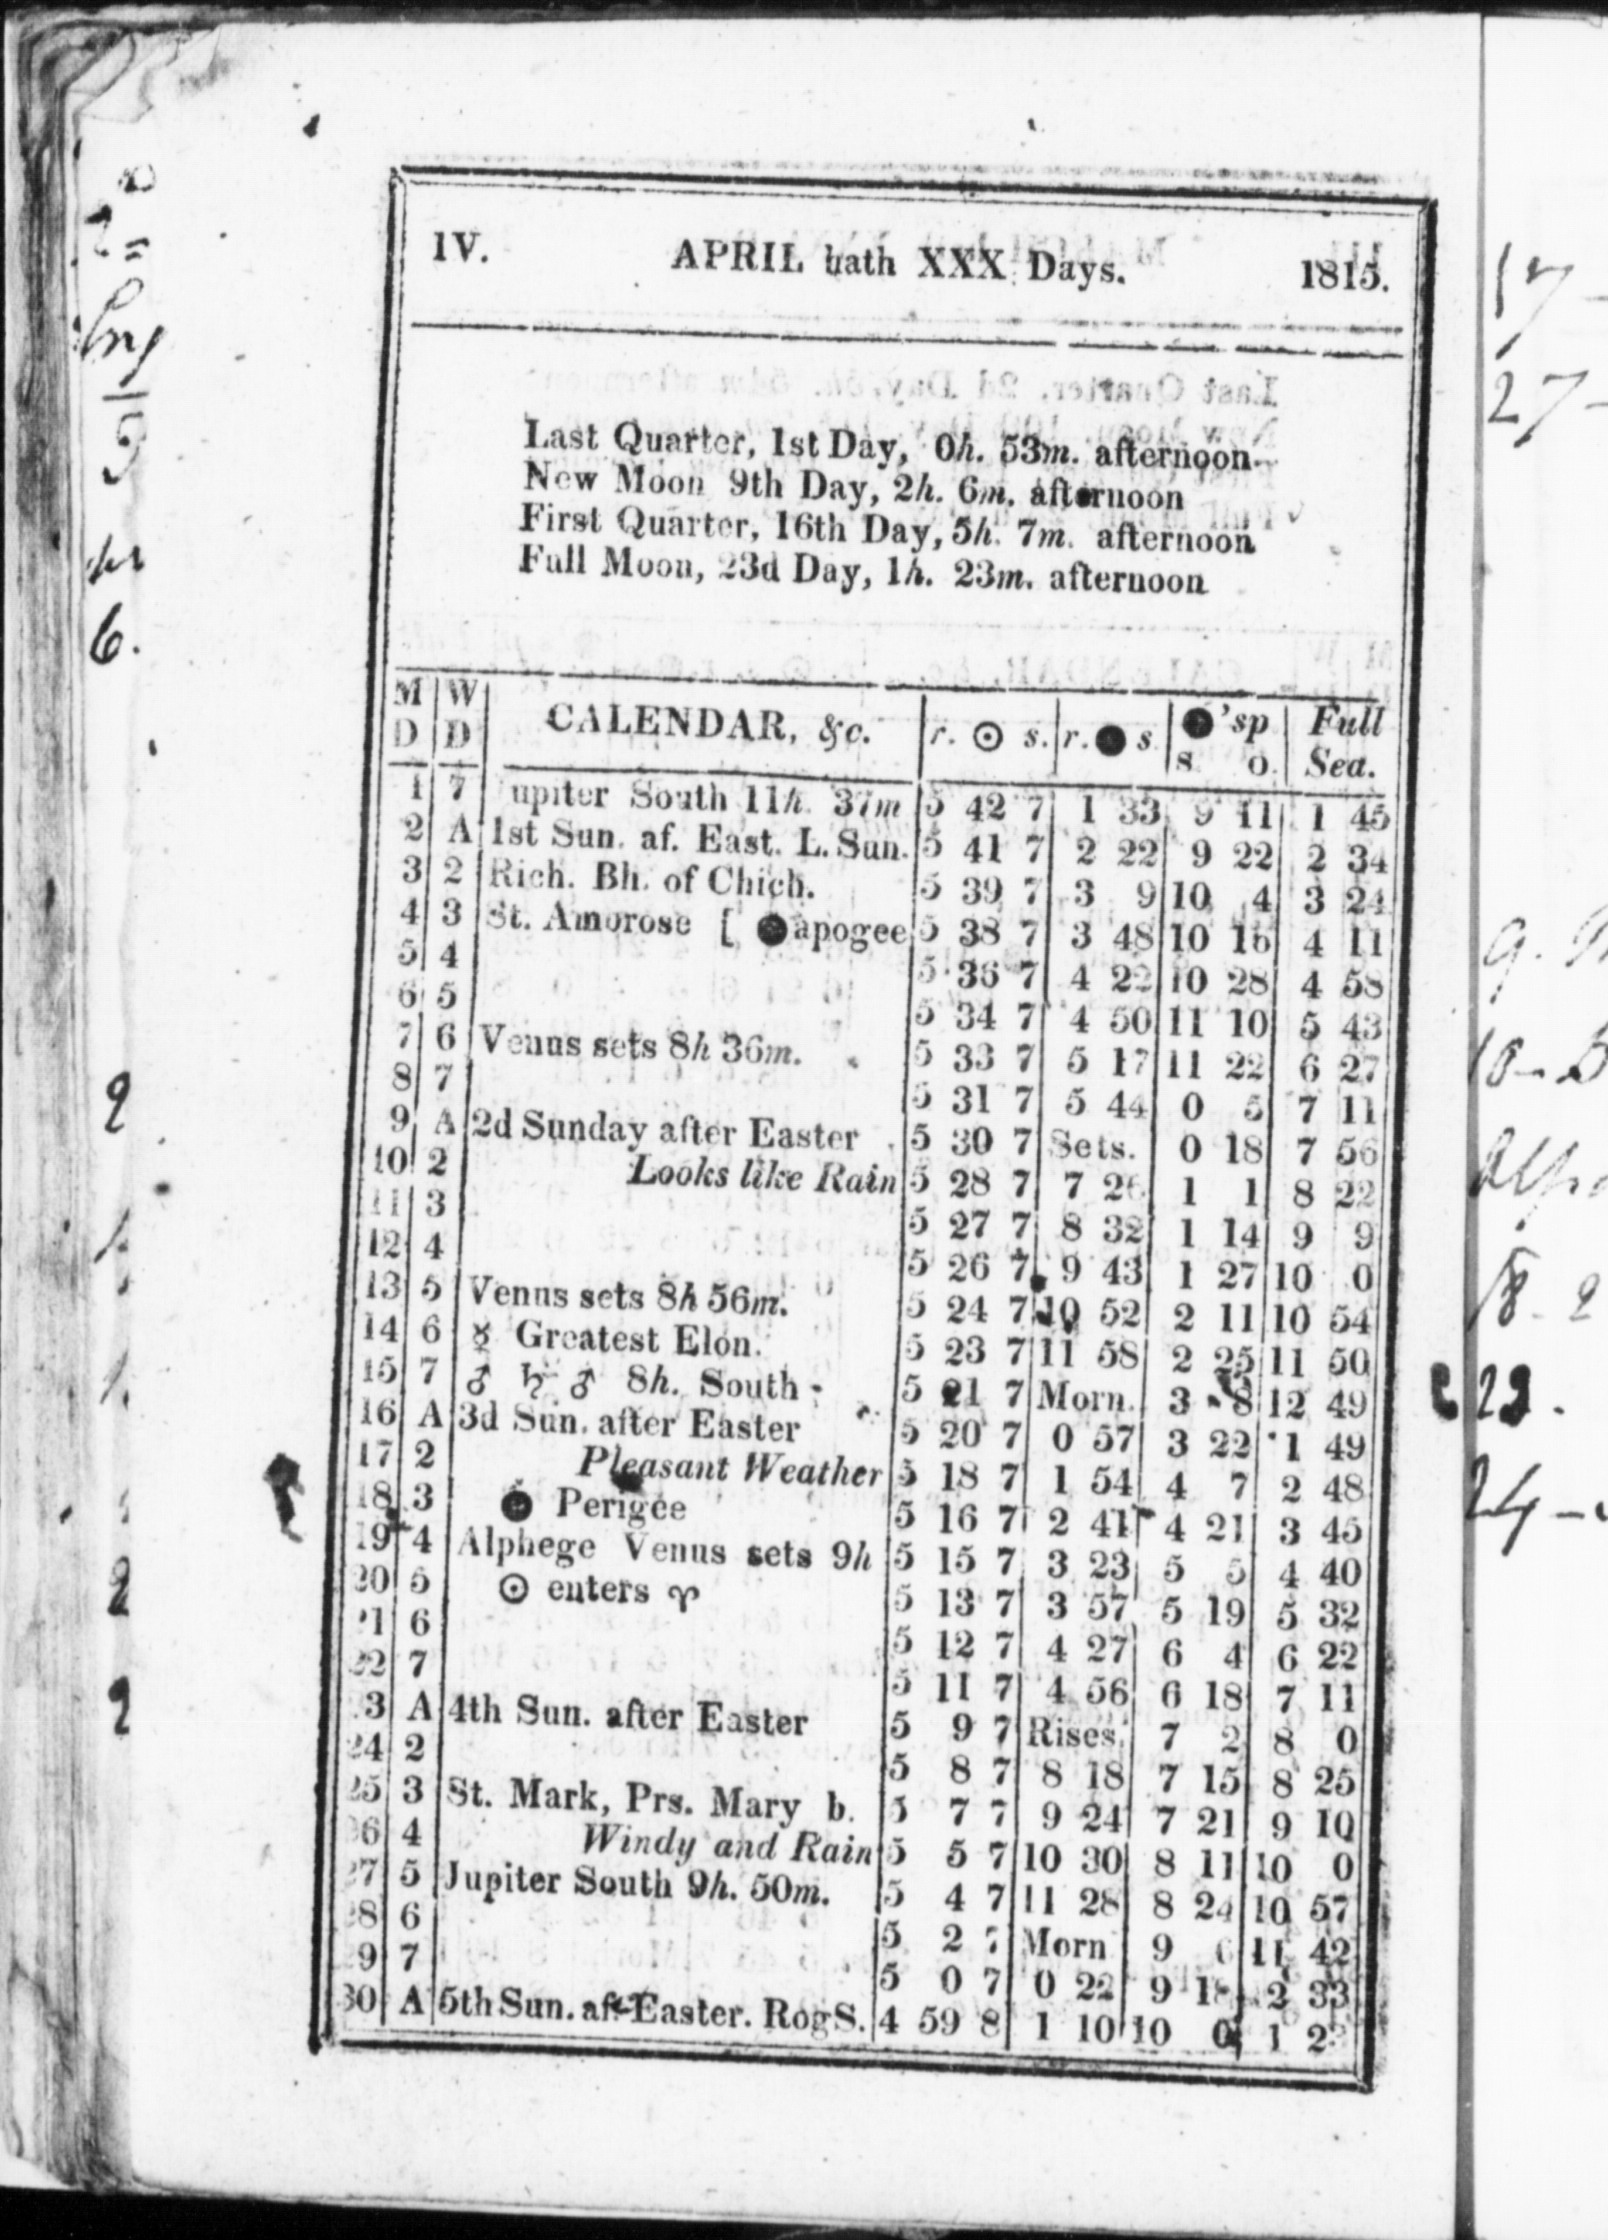 IV. APRIL hath XXX Days. 1815.
Last Quarter, 1st Day, 0h. 53m. afternoon
New Moon 9th Day, 2h. 6m. afternoon
First Quarter, 16th Day, 5h. 7m. afternoon
Full Moon, 23d Day, 1h. 23m. afternoon
M W CALENDAR, &c. r. ☉ s. r. ● s ●'sp Full
D D s o. Sea.
1 7 upiter South 11h. 37m 5 42 7 1 33 9 11 1 45
2 A 1st Sun. af. East. L. Sun. 5 41 7 2 22 9 22 2 34
3 2 Rich. Bh. of Chich. 5 39 7 3 9 10 4 3 24
4 3 St. Amorose [ ● apogee 5 38 7 3 48 10 16 4 11
5 4 5 36 7 4 22 10 28 4 58
6 5 5 34 7 4 50 11 10 5 43
7 6 Venus sets 8h 36m. 5 33 7 5 17 11 22 6 27
8 7 5 31 7 5 44 0 5 7 11
9 A 2d Sunday after Easter 5 30 7 Sets. 0 18 7 56
10 2 Looks like Rain 5 28 7 7 26 1 1 8 22
11 3 5 27 7 8 32 1 14 9 9
12 4 5 26 7 9 43 1 27 10 0
13 5 Venus sets 8h 56m. 5 24 7 10 52 2 11 10 54
14 6 ☿ Greatest Elon. 5 23 7 11 58 2 25 11 50
15 7 ♂ ♄ ♂ 8h. South 5 21 7 Morn. 3 8 12 49
16 A 3d Sun. after Easter 5 20 7 0 57 3 22 1 49
17 2 Pleasant Weather 5 18 7 1 54 4 7 2 48
18 3 ● Perigee 5 16 7 2 41 4 21 3 45
19 4 Alphege Venus sets 9h 5 15 7 3 23 5 5 4 40
20 5 ☉ enters ♈ 5 13 7 3 57 5 19 5 32
21 6 5 12 7 4 27 6 4 6 22
22 7 5 11 7 4 56 6 18 7 11
3 A 4th Sun. after Easter 5 9 7 Rises. 7 2 8 0
24 2 5 8 7 8 18 7 15 8 25
25 3 St. Mark, Prs. Mary b. 5 7 7 9 24 7 21 9 10
6 4 Windy and Rain 5 5 7 10 30 8 11 10 0
7 5 Jupiter South 9h. 50m. 5 4 7 11 28 8 24 10 57
8 6 5 2 7 Morn 9 6 11 42
9 7 5 0 7 0 22 9 18 2 33
30 A 5th Sun. aft Easter. Rog S. 4 59 8 1 10 10 0 1 2
6.
17-
27-
18-
23.
24-